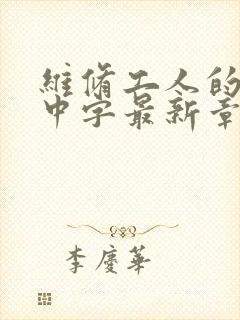 維脩工人的
中字最新章
李慶華